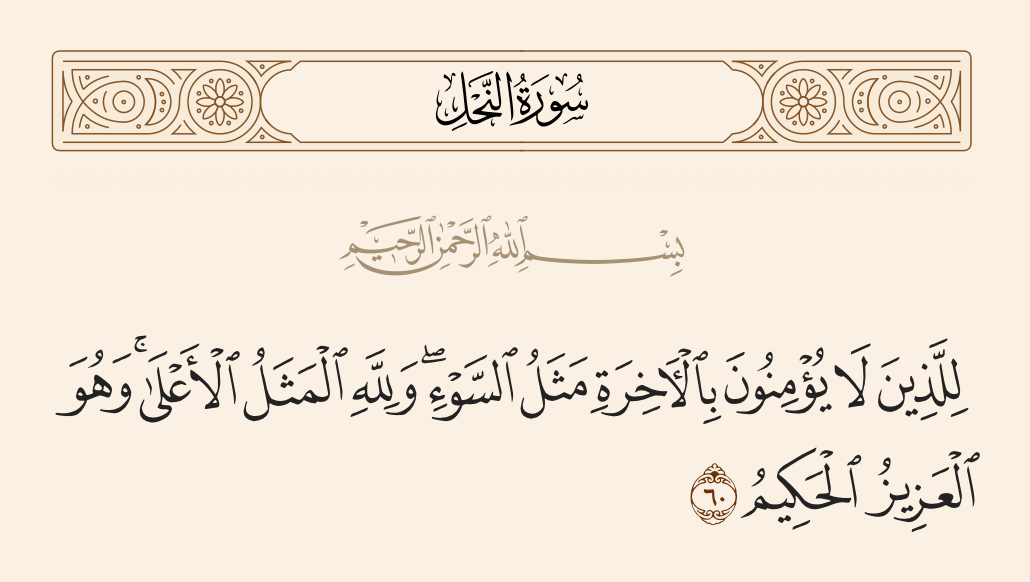 سُورَةُ النَّحْلِ
بِسْمِ ٱللَّهِ ٱلرَّحْمَٰنِ ٱلرَّحِيمِ
لِلَّذِينَ لَا يُؤْمِنُونَ بِٱلْـَٔاخِرَةِ مَثَلُ ٱلسَّوْءِ ۖ وَلِلَّهِ ٱلْمَثَلُ ٱلْأَعْلَىٰ ۚ وَهُوَ
ٱلْعَزِيزُ ٱلْحَكِيمُ ٦٠